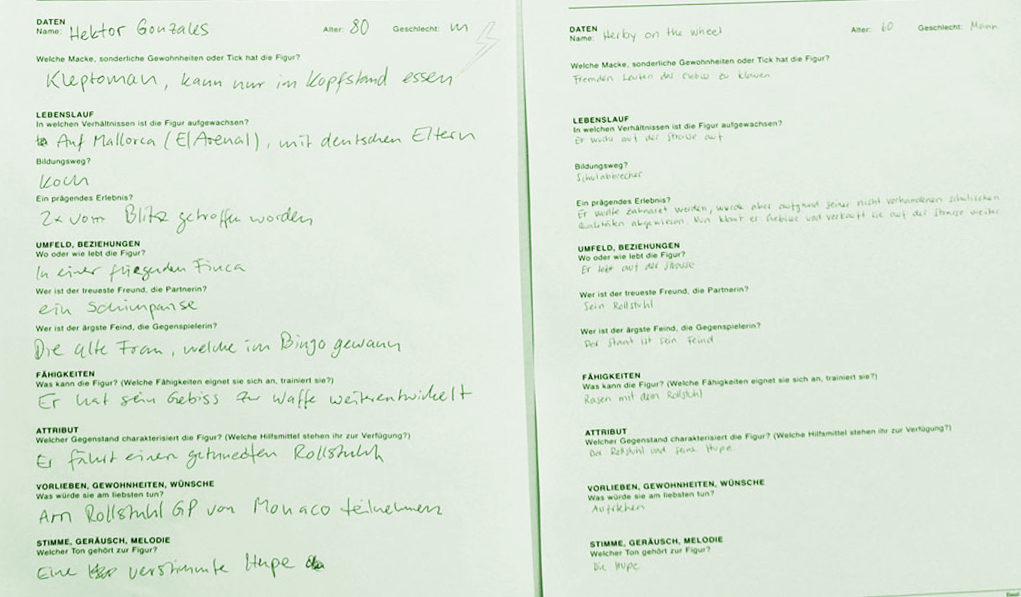 DATEN
Name: Hektor Gonzales Alter: 80 Geschlecht: m
Welche Macke, sonderliche Gewohnheiten oder Tick hat die Figur?
Kleptoman, kann nur im Kopfstand essen
LEBENSLAUF
In welchen Verhältnissen ist die Figur aufgewachsen?
Auf Mallorca (El Arenal), mit deutschen Eltern
Bildungsweg?
Koch
Ein prägendes Erlebnis?
2x vom Blitz getroffen worden
UMFELD, BEZIEHUNGEN
Wo oder wie lebt die Figur?
In einer fliegenden Finca
Wer ist der treueste Freund, die Partnerin?
ein Schimpanse
Wer ist der ärgste Feind, die Gegenspielerin?
Die alte Frau, welche im Bingo gewann
FÄHIGKEITEN
Was kann die Figur? (Welche Fähigkeiten eignet sie sich an, trainiert sie?)
Er hat sein Gebiss zur Waffe weiterentwickelt
ATTRIBUT
Welcher Gegenstand charakterisiert die Figur? (Welche Hilfsmittel stehen ihr zur Verfügung?)
Er fährt einen getunedten Rollstuhl
VORLIEBEN, GEWOHNHEITEN, WÜNSCHE
Was würde sie am liebsten tun?
Am Rollstuhl GP von Monaco teilnehmen
STIMME, GERÄUSCH, MELODIE
Welcher Ton gehört zur Figur?
Eine verstimmte Hupe
DATEN
Name: Herby on the wheel Alter: 60 Geschlecht: Mann
Welche Macke, sonderliche Gewohnheiten oder Tick hat die Figur?
Fremden Leuten das Gebiss zu klauen
LEBENSLAUF
In welchen Verhältnissen ist die Figur aufgewachsen?
Er wuchs auf der Strasse auf
Bildungsweg?
Schulabbrecher
Ein prägendes Erlebnis?
Er wollte Zahnarzt werden, wurde aber aufgrund seiner nicht vorhandenen schulischen
Qualitäten abgewiesen. Nun klaut er Gebisse und verkauft sie auf der Strasse weiter
UMFELD, BEZIEHUNGEN
Wo oder wie lebt die Figur?
Er lebt auf der Strasse
Wer ist der treueste Freund, die Partnerin?
Sein Rollstuhl
Wer ist der ärgste Feind, die Gegenspielerin?
Der Staat ist sein Feind
FÄHIGKEITEN
Was kann die Figur? (Welche Fähigkeiten eignet sie sich an, trainiert sie?)
Rasen mit dem Rollstuhl
ATTRIBUT
Welcher Gegenstand charakterisiert die Figur? (Welche Hilfsmittel stehen ihr zur Verfügung?)
Der Rollstuhl und seine Hupe
VORLIEBEN, GEWOHNHEITEN, WÜNSCHE
Was würde sie am liebsten tun?
Aufstehen
STIMME, GERÄUSCH, MELODIE
Welcher Ton gehört zur Figur?
Die Hupe